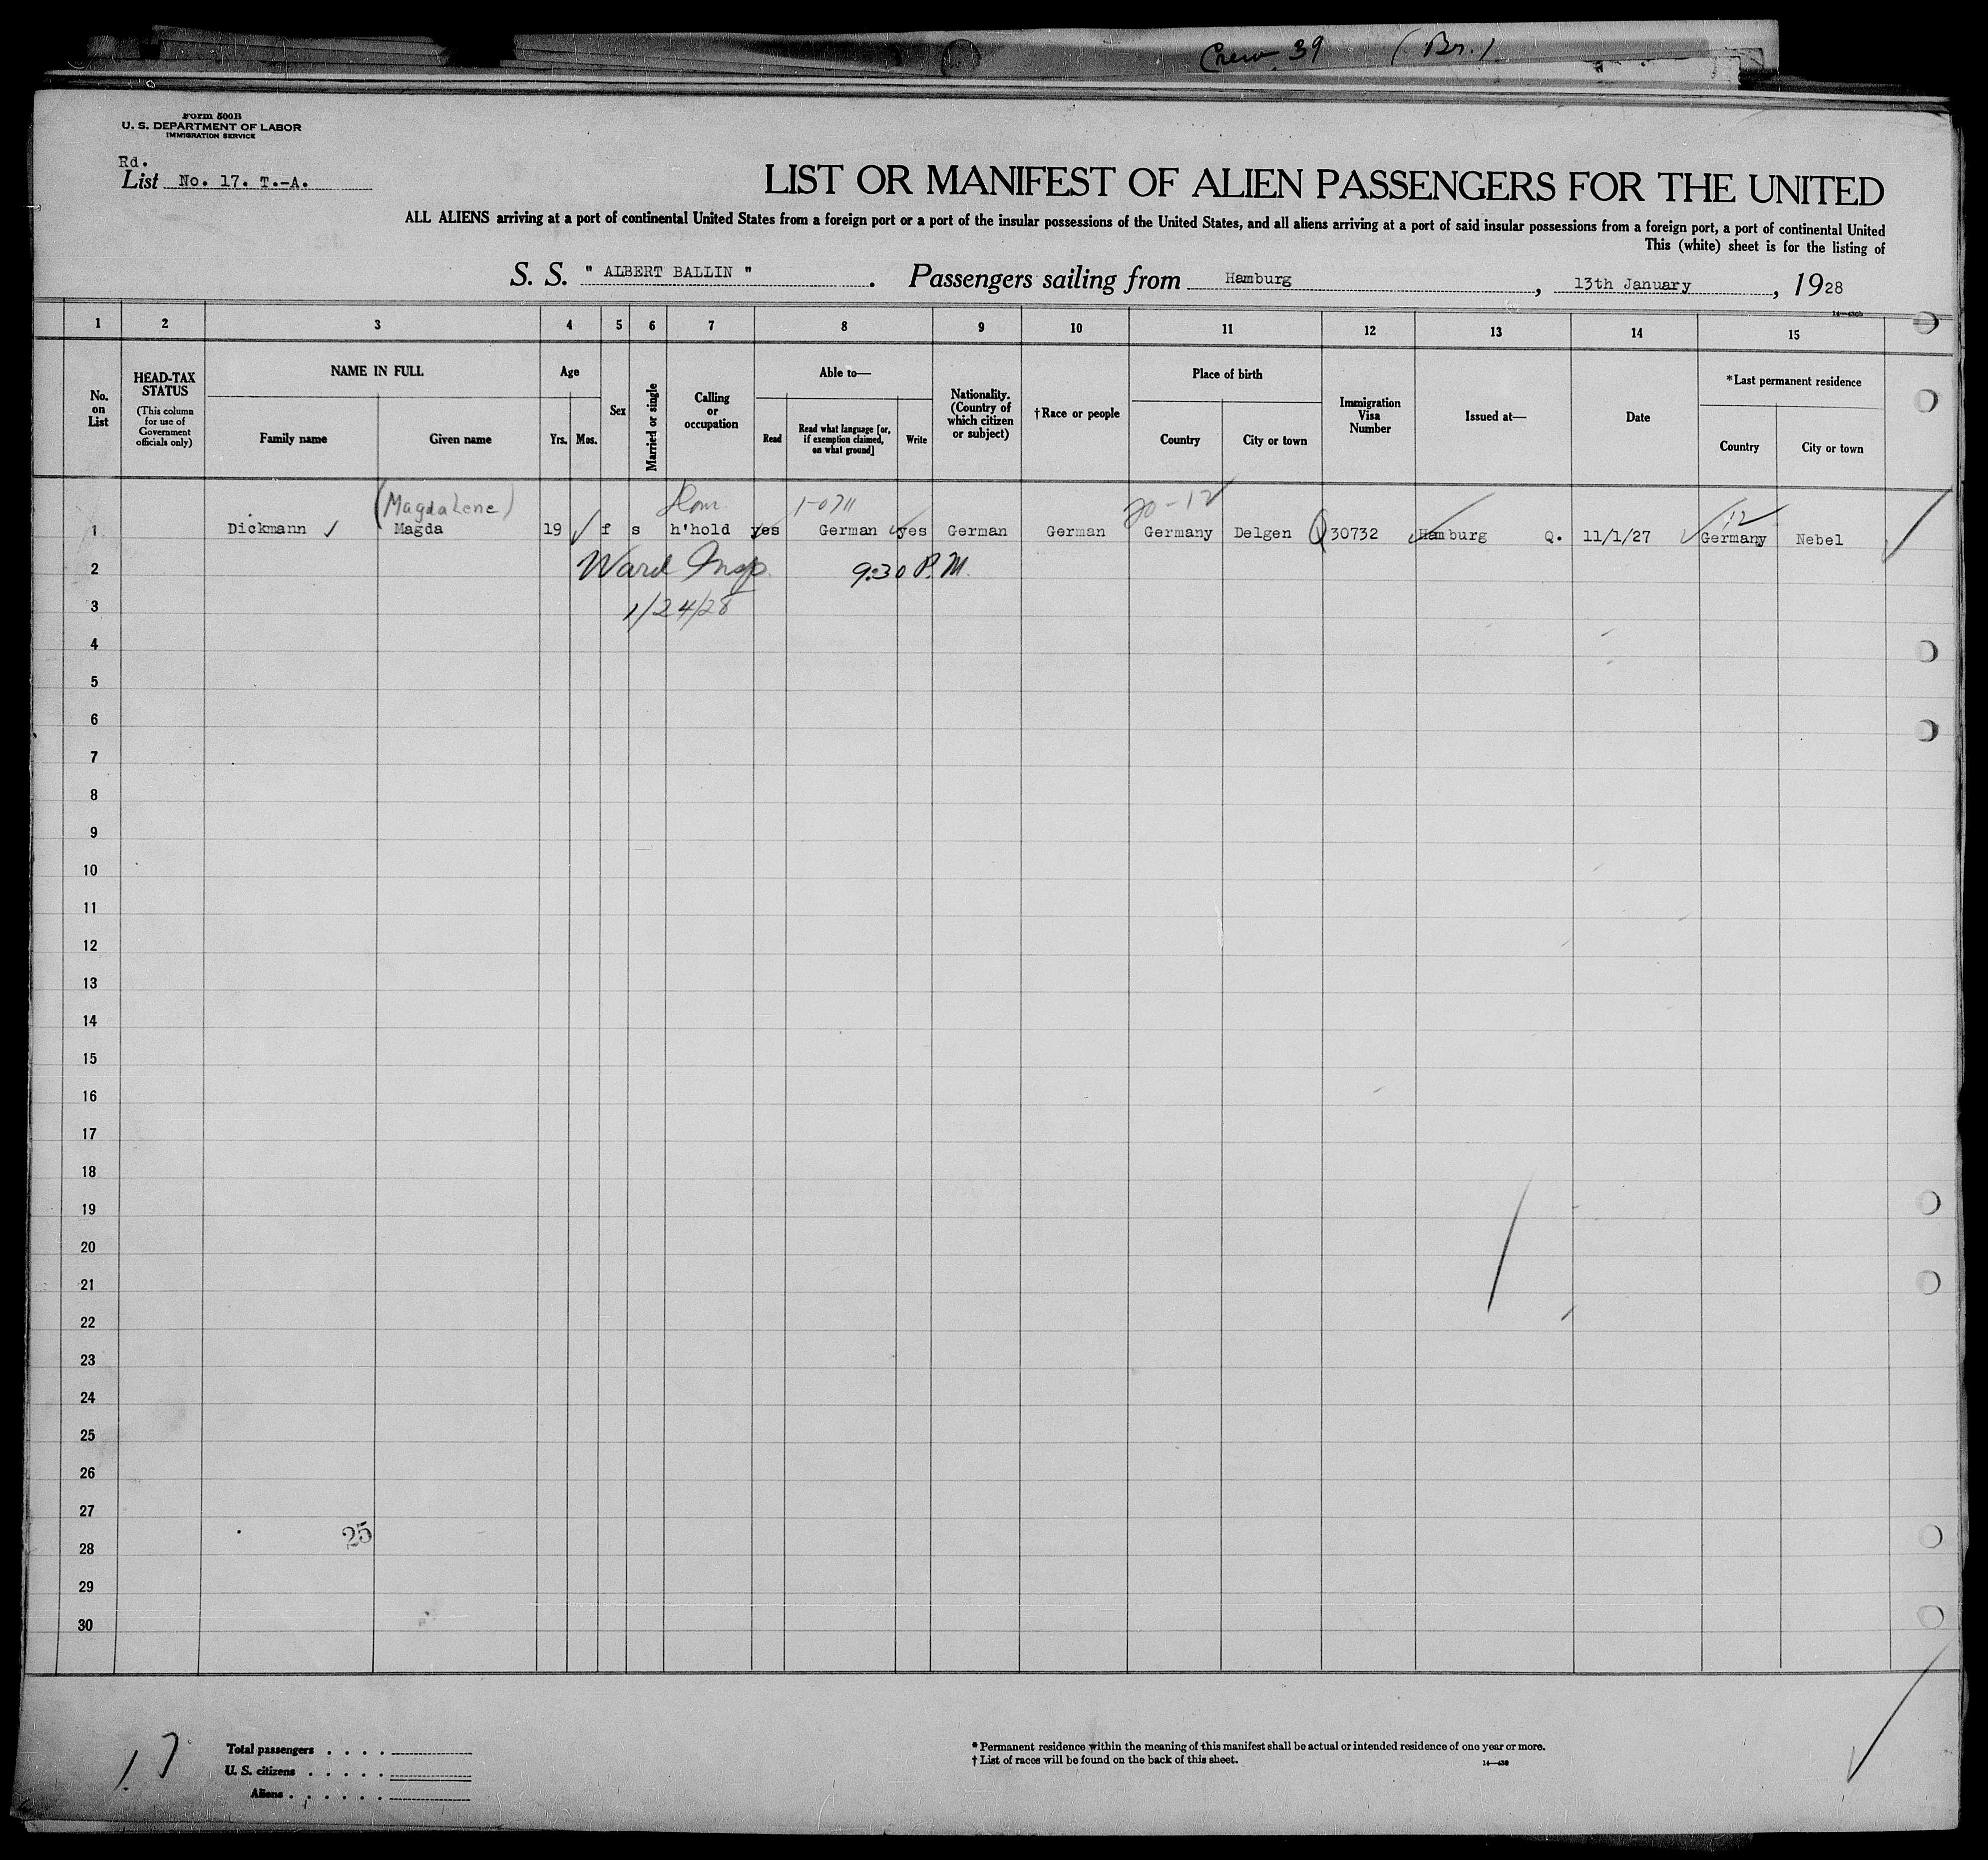 Crew. 39 (Br.)
Form 500B
U. S. DEPARTMENT OF LABOR
IMMIGRATION SERVICE
Rd.
List No. 17. T.-A.
LIST OR MANIFEST OF ALIEN PASSENGERS FOR THE UNITED
ALL ALIENS arriving at a port of continental United States from a foreign port or a port of the insular possessions of the United States, and all aliens arriving at a port of said insular possessions from a foreign port, a port of continental United
This (white) sheet is for the listing of
S. S. " ALBERT BALLIN " . Passengers sailing from Hamburg , 13th January , 1928
14—430b
1 2 3 4 5 6 7 8 9 10 11 12 13 14 15
No. on List
HEAD-TAX STATUS
(This column for use of Government officials only)
NAME IN FULL
Family name Given name
Age
Yrs. Mos.
Sex
Married or single
Calling or occupation
Able to—
Read
Read what language [or, if exemption claimed, on what ground]
Write
Nationality. (Country of which citizen or subject)
†Race or people
Place of birth
Country City or town
Immigration Visa Number
Issued at—
Date
*Last permanent residence
Country City or town
(Magdalene) Dom. 20-12 12
1 Dickmann ✓ Magda 19 ✓ f s h'hold yes German yes German German Germany Delgen Q 30732 Hamburg Q. 11/1/27 Germany Nebel
2 Ward Insp. 9:30 P.M.
3 1/24/28
4
5
6
7
8
9
10
11
12
13
14
15
16
17
18
19
20
21
22
23
24
25
26
27
25
28
29
30
17
Total passengers . . . .
U. S. citizens . . . . .
Aliens . . . . . .
* Permanent residence within the meaning of this manifest shall be actual or intended residence of one year or more.
† List of races will be found on the back of this sheet.
14—430